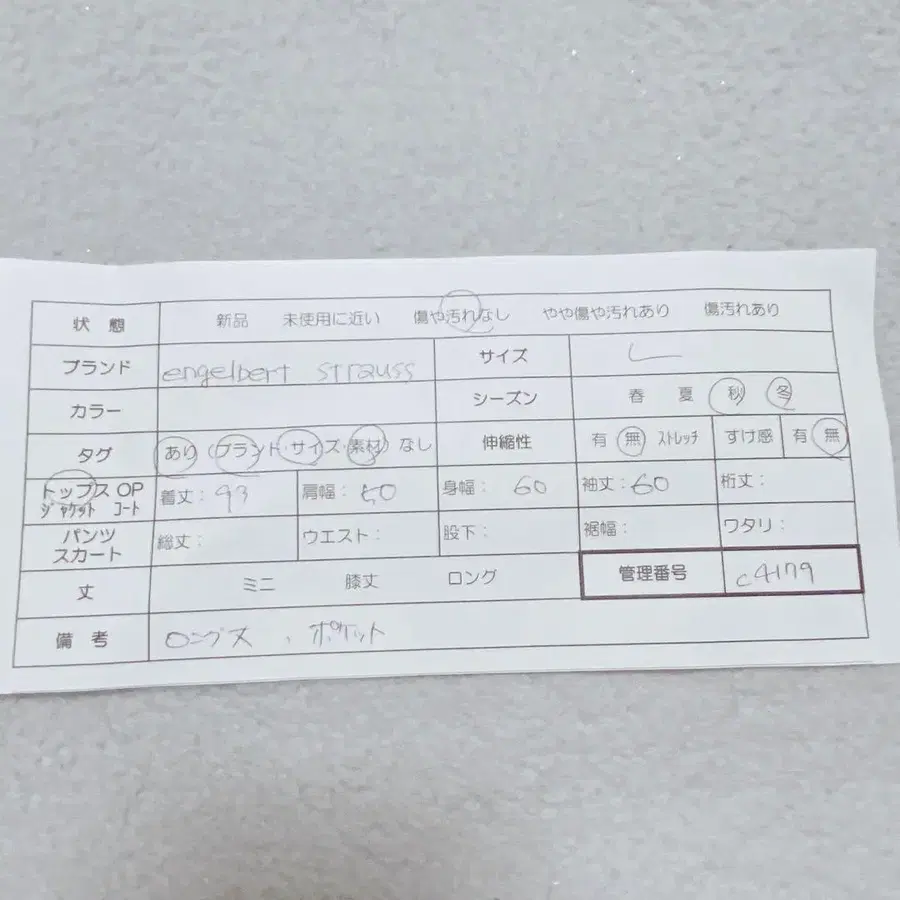 状態 新品 未使用に近い 傷や汚れなし やや傷や汚れあり 傷汚れあり
ブランド engelbert strauss サイズ L
カラー シーズン 春 夏 秋 冬
タグ あり (ブランド・サイズ・素材) なし 伸縮性 有 無 ストレッチ すけ感 有 無
トップス OP
ジャケット コート 着丈: 93 肩幅: 50 身幅: 60 袖丈: 60 裄丈:
パンツ
スカート 総丈: ウエスト: 股下: 裾幅: ワタリ:
丈 ミニ 膝丈 ロング 管理番号 c4179
備考 ロング丈、ポケット